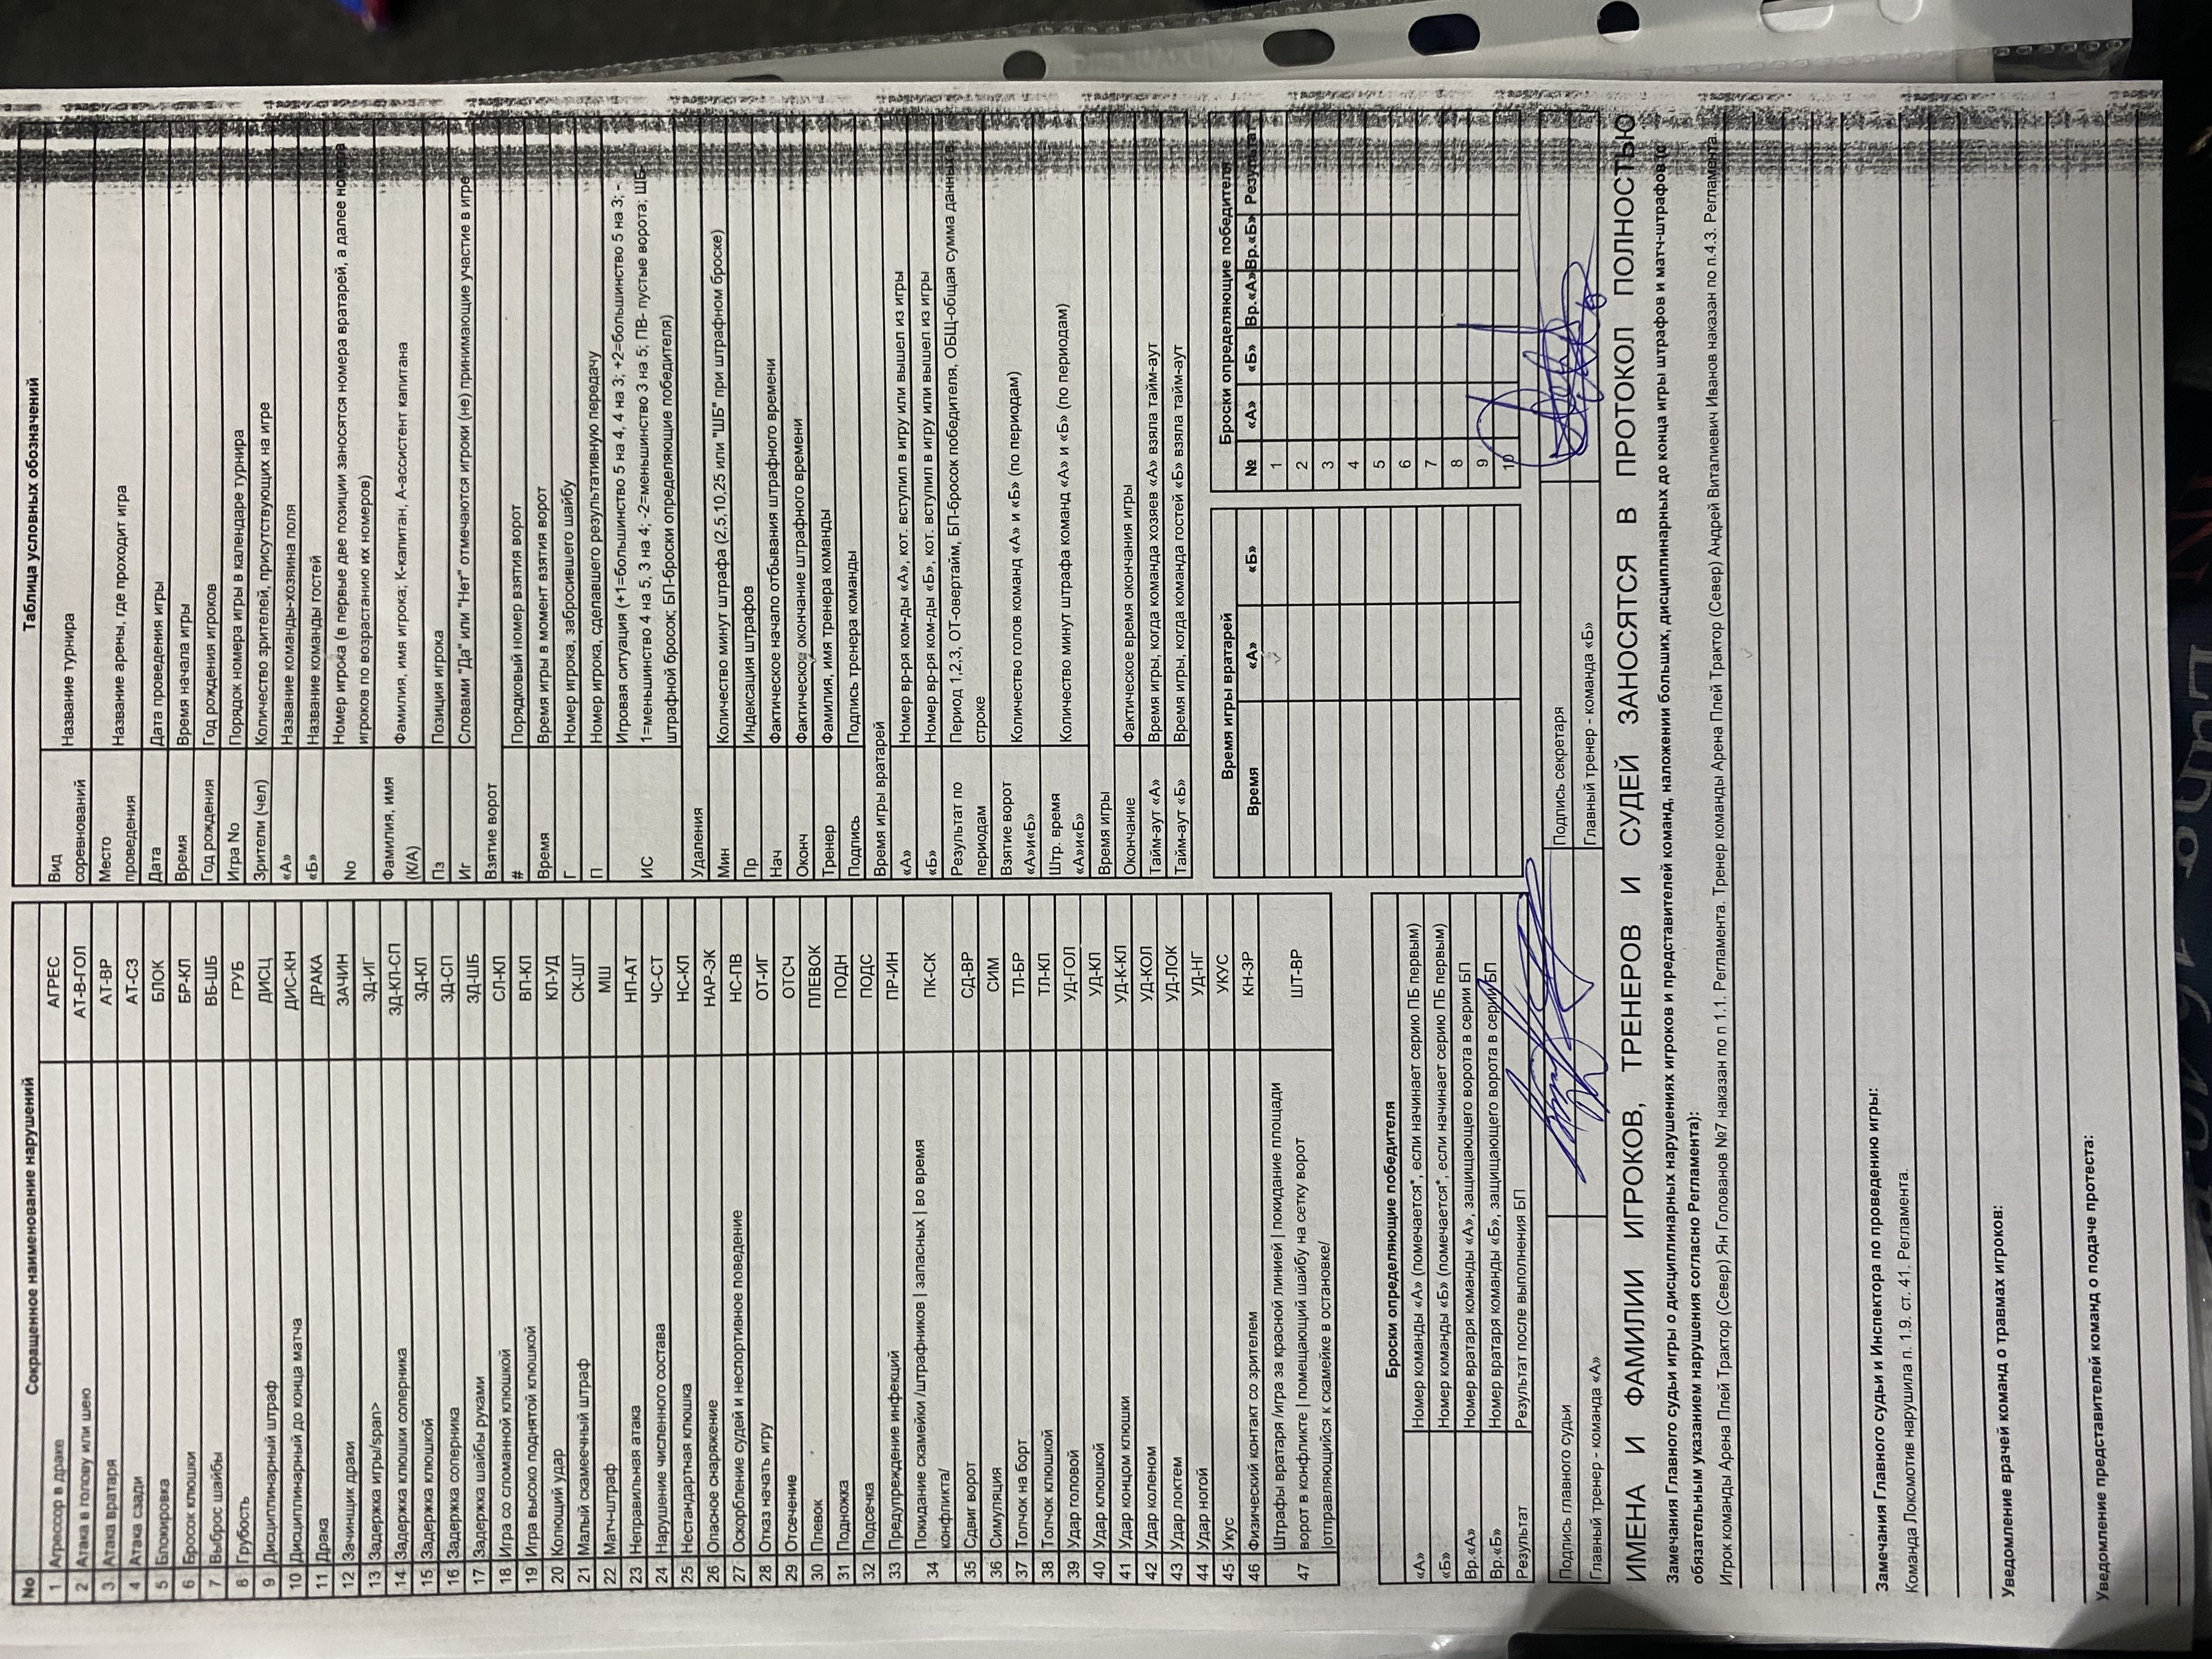 No Сокращенное наименование нарушений
1 Агрессор в драке АГРЕС
2 Атака в голову или шею АТ-В-ГОЛ
3 Атака вратаря АТ-ВР
4 Атака сзади АТ-СЗ
5 Блокировка БЛОК
6 Бросок клюшки БР-КЛ
7 Выброс шайбы ВБ-ШБ
8 Грубость ГРУБ
9 Дисциплинарный штраф ДИСЦ
10 Дисциплинарный до конца матча ДИС-КН
11 Драка ДРАКА
12 Зачинщик драки ЗАЧИН
13 Задержка игры/span> ЗД-ИГ
14 Задержка клюшки соперника ЗД-КЛ-СП
15 Задержка клюшкой ЗД-КЛ
16 Задержка соперника ЗД-СП
17 Задержка шайбы руками ЗД-ШБ
18 Игра со сломанной клюшкой СЛ-КЛ
19 Игра высоко поднятой клюшкой ВП-КЛ
20 Колющий удар КЛ-УД
21 Малый скамеечный штраф СК-ШТ
22 Матч-штраф МШ
23 Неправильная атака НП-АТ
24 Нарушение численного состава ЧС-СТ
25 Нестандартная клюшка НС-КЛ
26 Опасное снаряжение НАР-ЭК
27 Оскорбление судей и неспортивное поведение НС-ПВ
28 Отказ начать игру ОТ-ИГ
29 Отсечение ОТСЧ
30 Плевок ПЛЕВОК
31 Подножка ПОДН
32 Подсечка ПОДС
33 Предупреждение инфекций ПР-ИН
34 Покидание скамейки /штрафников | запасных | во время
конфликта/ ПК-СК
35 Сдвиг ворот СД-ВР
36 Симуляция СИМ
37 Толчок на борт ТЛ-БР
38 Толчок клюшкой ТЛ-КЛ
39 Удар головой УД-ГОЛ
40 Удар клюшкой УД-КЛ
41 Удар концом клюшки УД-К-КЛ
42 Удар коленом УД-КОЛ
43 Удар локтем УД-ЛОК
44 Удар ногой УД-НГ
45 Укус УКУС
46 Физический контакт со зрителем КН-ЗР
47 Штрафы вратаря /игра за красной линией | покидание площади
ворот в конфликте | помещающий шайбу на сетку ворот
|отправляющийся к скамейке в остановке/ ШТ-ВР
Таблица условных обозначений
Вид соревнований Название турнира
Место проведения Название арены, где проходит игра
Дата Дата проведения игры
Время Время начала игры
Год рождения Год рождения игроков
Игра No Порядок номера игры в календаре турнира
Зрители (чел) Количество зрителей, присутствующих на игре
«А» Название команды-хозяина поля
«Б» Название команды гостей
No Номер игрока (в первые две позиции заносятся номера вратарей, а далее номера
игроков по возрастанию их номеров)
Фамилия, имя (К/А) Фамилия, имя игрока; К-капитан, А-ассистент капитана
Пз Позиция игрока
Иг Словами "Да" или "Нет" отмечаются игроки (не) принимающие участие в игре
Взятие ворот
# Порядковый номер взятия ворот
Время Время игры в момент взятия ворот
Г Номер игрока, забросившего шайбу
П Номер игрока, сделавшего результативную передачу
ИС Игровая ситуация (+1=большинство 5 на 4, 4 на 3; +2=большинство 5 на 3; -
1=меньшинство 4 на 5, 3 на 4; -2=меньшинство 3 на 5; ПВ- пустые ворота; ШБ-
штрафной бросок; БП-броски определяющие победителя)
Удаления
Мин Количество минут штрафа (2,5,10,25 или "ШБ" при штрафном броске)
Пр Индексация штрафов
Нач Фактическое начало отбывания штрафного времени
Оконч Фактическое окончание штрафного времени
Тренер Фамилия, имя тренера команды
Подпись Подпись тренера команды
Время игры вратарей
«А» Номер вр-ря ком-ды «А», кот. вступил в игру или вышел из игры
«Б» Номер вр-ря ком-ды «Б», кот. вступил в игру или вышел из игры
Результат по периодам Период 1,2,3, ОТ-овертайм, БП-бросок победителя, ОБЩ-общая сумма данных в
строке
Взятие ворот «А»и«Б» Количество голов команд «А» и «Б» (по периодам)
Штр. время «А»и«Б» Количество минут штрафа команд «А» и «Б» (по периодам)
Время игры
Окончание Фактическое время окончания игры
Тайм-аут «А» Время игры, когда команда хозяев «А» взяла тайм-аут
Тайм-аут «Б» Время игры, когда команда гостей «Б» взяла тайм-аут
Броски определяющие победителя
«А» Номер команды «А» (помечается*, если начинает серию ПБ первым)
«Б» Номер команды «Б» (помечается*, если начинает серию ПБ первым)
Вр.«А» Номер вратаря команды «А», защищающего ворота в серии БП
Вр.«Б» Номер вратаря команды «Б», защищающего ворота в серии БП
Результат Результат после выполнения БП
Время игры вратарей
Время «А» «Б»
Броски определяющие победителя
№ «А» «Б» Вр.«А» Вр.«Б» Результат
1
2
3
4
5
6
7
8
9
10
Подпись главного судьи Подпись секретаря
Главный тренер - команда «А» Главный тренер - команда «Б»
ИМЕНА И ФАМИЛИИ ИГРОКОВ, ТРЕНЕРОВ И СУДЕЙ ЗАНОСЯТСЯ В ПРОТОКОЛ ПОЛНОСТЬЮ
Замечания Главного судьи игры о дисциплинарных нарушениях игроков и представителей команд, наложении больших, дисциплинарных до конца игры штрафов и матч-штрафов (с
обязательным указанием нарушения согласно Регламента):
Игрок команды Арена Плей Трактор (Север) Ян Голованов №7 наказан по п 1.1. Регламента. Тренер команды Арена Плей Трактор (Север) Андрей Виталиевич Иванов наказан по п.4.3. Регламента.
Замечания Главного судьи и Инспектора по проведению игры:
Команда Локомотив нарушила п. 1.9. ст. 41. Регламента.
Уведомление врачей команд о травмах игроков:
Уведомление представителей команд о подаче протеста: